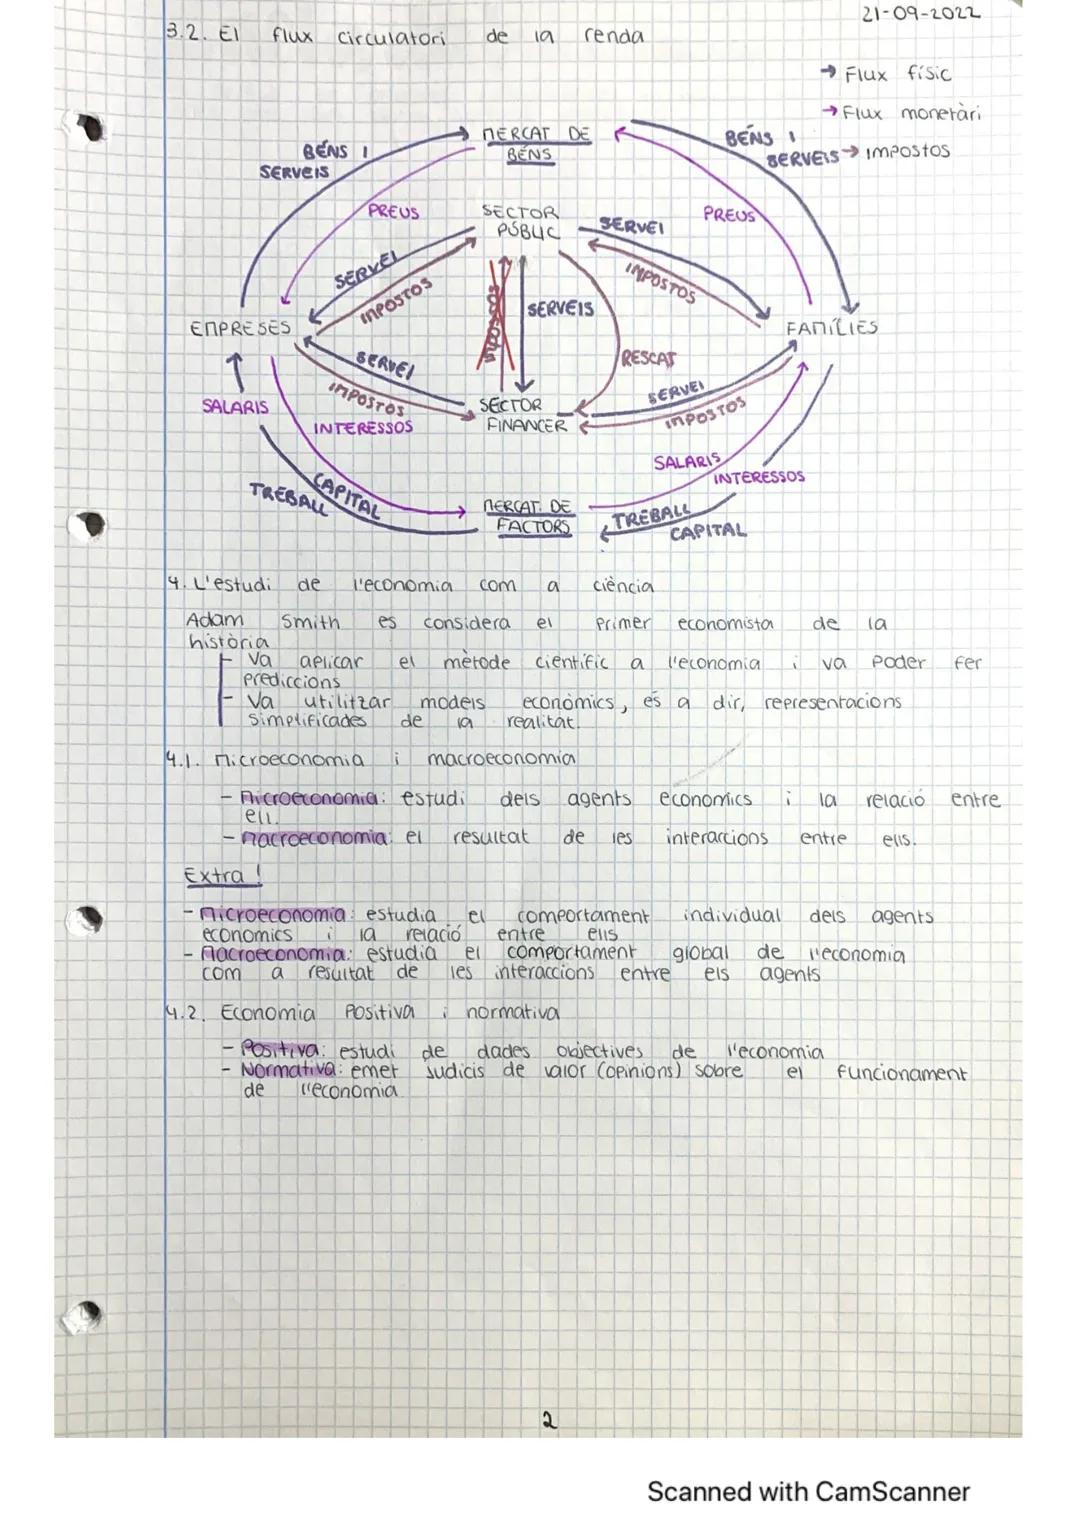 21-09-2022
3.2. El flux circulatori de la renda
→ Flux físic
→ Flux monetàri
→ impostos
BÉNS I
SERVEIS
MERCAT DE
BÉNS
BÉNS I
SERVEIS
PREUS
SECTOR
PÚBLIC
SERVEI
PREUS
SERVEI
IMPOSTOS
IMPOSTOS
SERVEIS
EMPRESES
FAMÍLIES
SERVEI
RESCAT
IMPOSTOS
SERVEI
SALARIS
INTERESSOS
SECTOR
FINANCER
IMPOSTOS
SALARIS
INTERESSOS
TREBALL
CAPITAL
MERCAT DE
FACTORS
TREBALL
CAPITAL
4. L'estudi de l'economia com a ciència
Adam Smith es considera el primer economista de la
història
Va aplicar el mètode científic a l'economia i va poder fer
prediccions
Va utilitzar models econòmics, és a dir, representacions
simplificades de la realitat.
4.1. Microeconomia i macroeconomia
- Microeconomia: estudi dels agents economics i la relació entre
ell.
- Macroeconomia: el resultat de les interaccions entre ells.
Extra!
- Microeconomia: estudia el comportament individual dels agents
economics i la relació entre ells
- Macroeconomia: estudia el comportament global de l'economia
com a resultat de les interaccions entre els agents
4.2. Economia Positiva i normativa
- Positiva: estudi de dades objectives de l'economia
- Normativa: emet judicis de valor (opinions) sobre el funcionament
de l'economia
2
Scanned with CamScanner